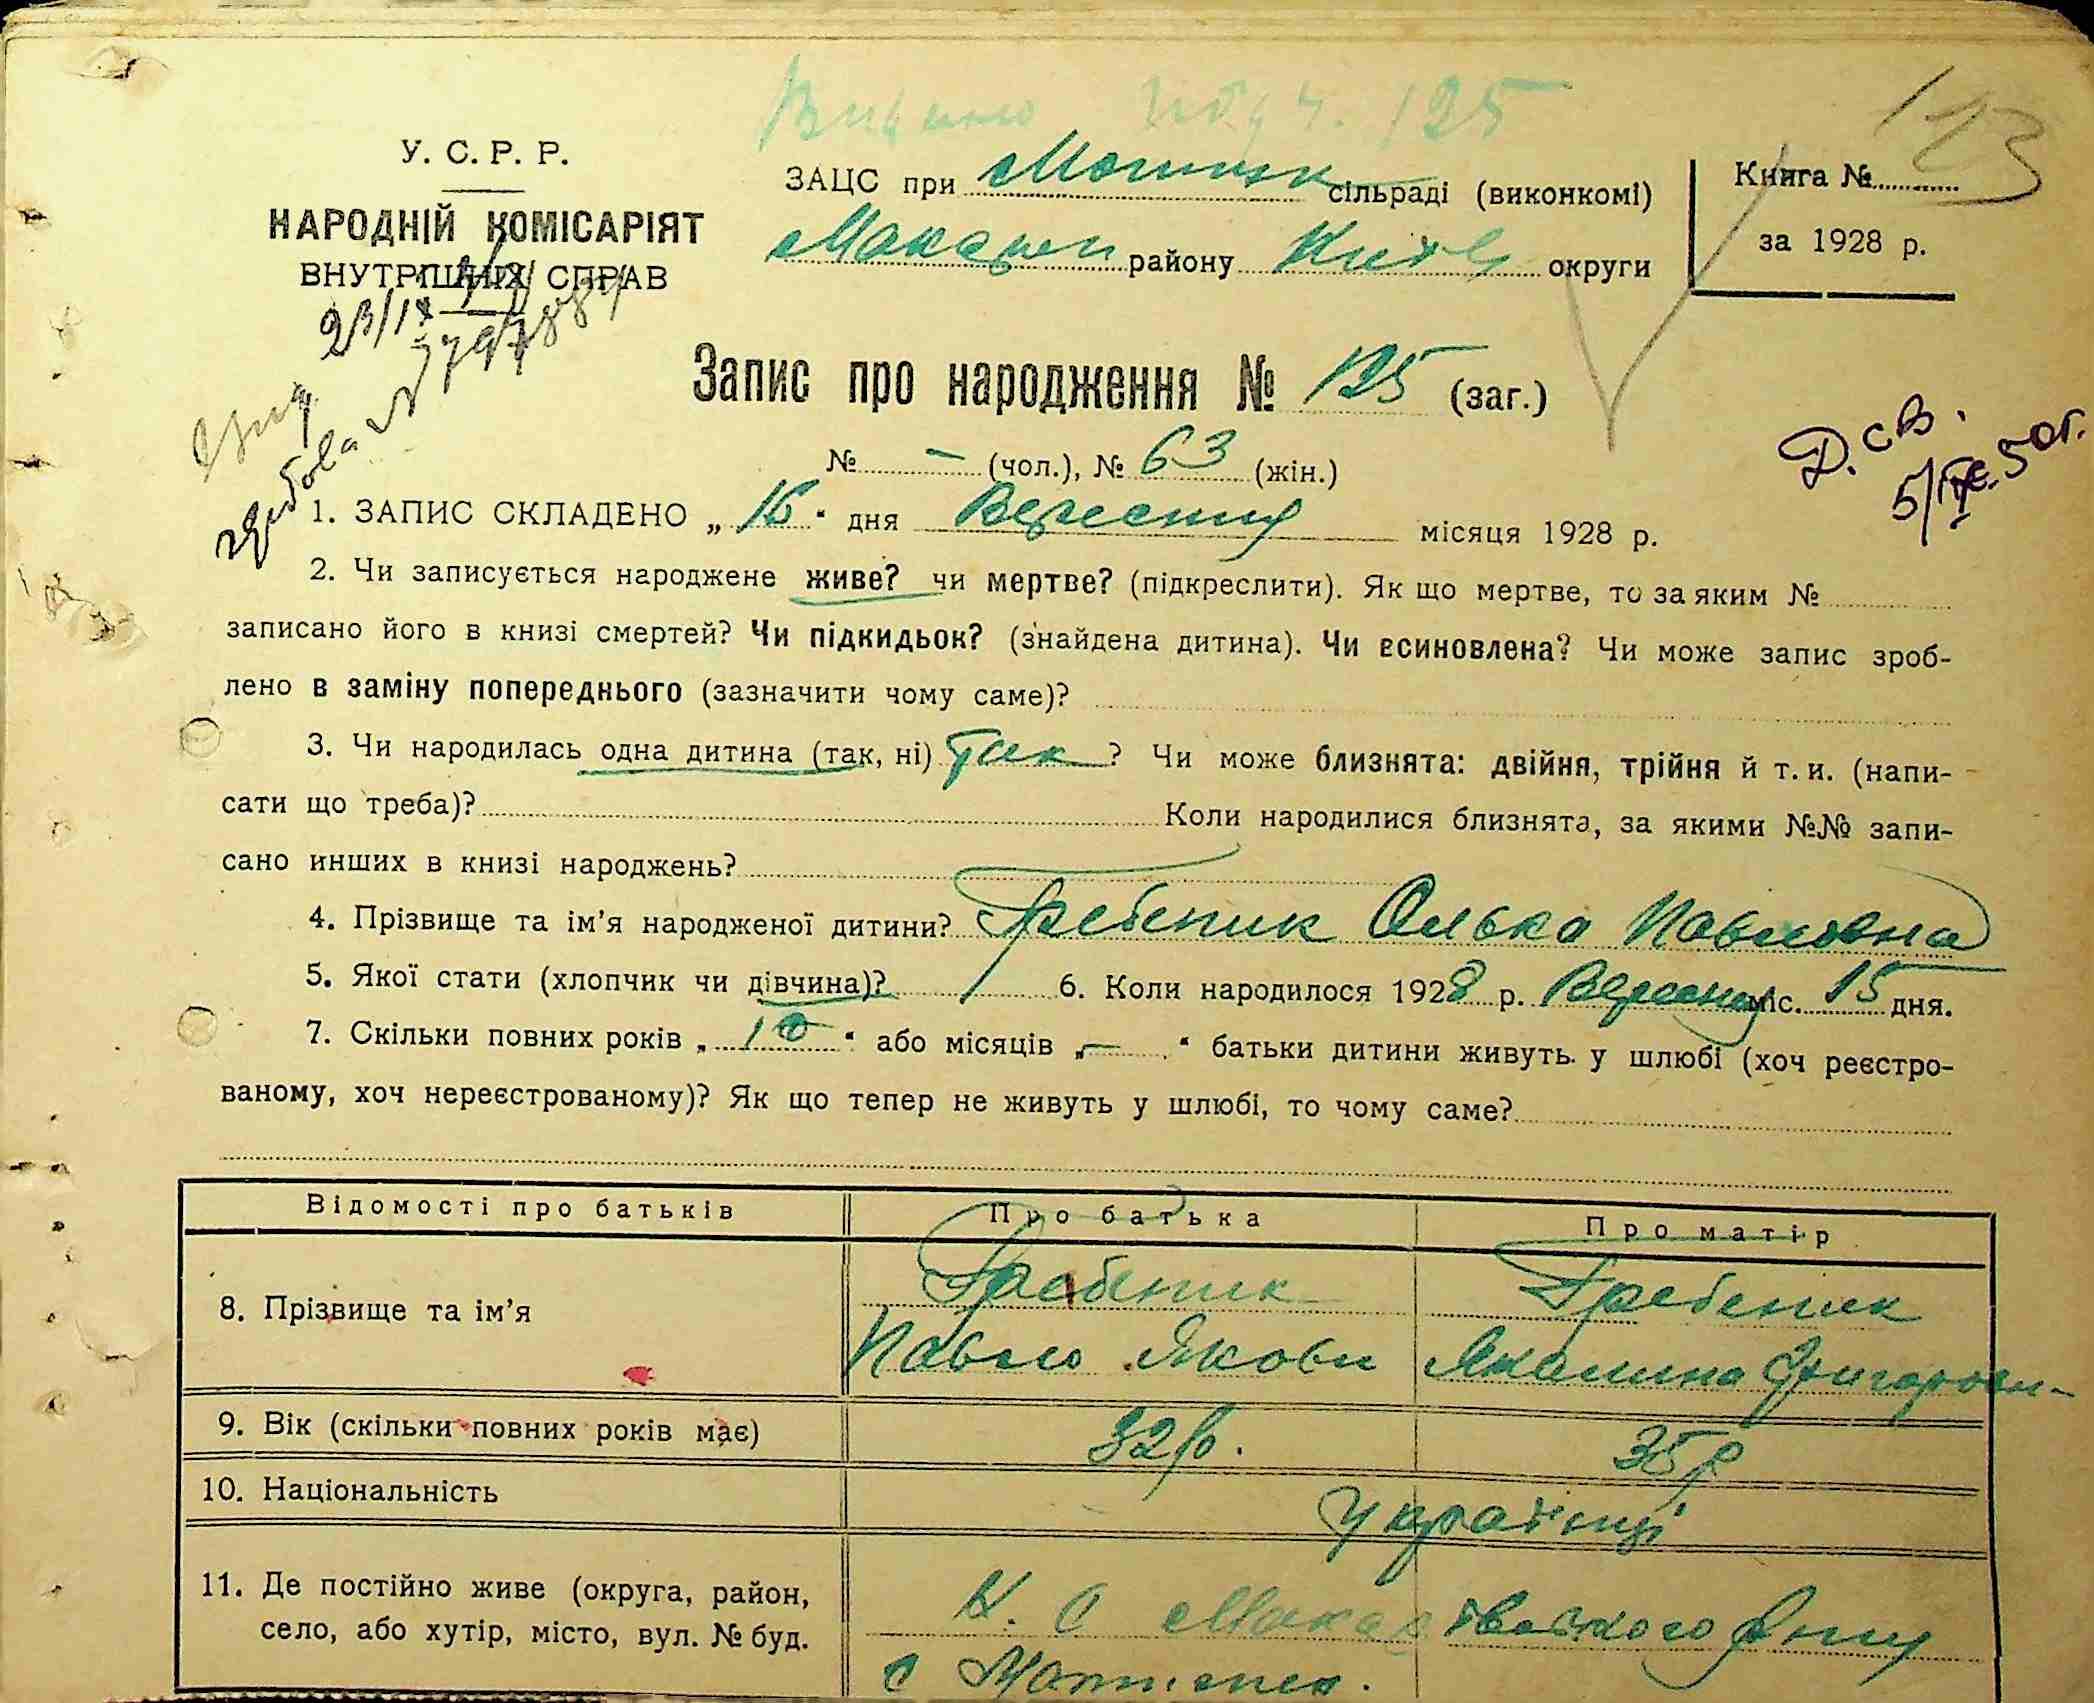 125
113
У. С. Р. Р.
НАРОДНІЙ КОМІСАРІЯТ
ВНУТРІШНІХ СПРАВ
ЗАЦС при сільраді (виконкомі)
району округи
Книга №
за 1928 р.
23/IX
Запис про народження № 125 (заг.)
№ — (чол.), № 63 (жін.)
Д. св.
1. ЗАПИС СКЛАДЕНО „ 16 " дня Вересня місяця 1928 р.
2. Чи записується народжене живе? чи мертве? (підкреслити). Як що мертве, то за яким №
записано його в книзі смертей? Чи підкидьок? (знайдена дитина). Чи всиновлена? Чи може запис зроб-
лено в заміну попереднього (зазначити чому саме)?
3. Чи народилась одна дитина (так, ні) Так ? Чи може близнята: двійня, трійня й т. и. (напи-
сати що треба)? Коли народилися близнята, за якими №№ запи-
сано инших в книзі народжень?
4. Прізвище та ім'я народженої дитини? Гребеник Олька Павловна
5. Якої стати (хлопчик чи дівчина)? 6. Коли народилося 1928 р. Вересня міс. 15 дня.
7. Скільки повних років „ 10 " або місяців „ — " батьки дитини живуть у шлюбі (хоч реєстро-
ваному, хоч нереєстрованому)? Як що тепер не живуть у шлюбі, то чому саме?
Відомості про батьків Про батька Про матір
8. Прізвище та ім'я Гребеник Гребеник
Павло Якови Якилина Григоровн-
9. Вік (скільки повних років має) 32 р. 35 р
10. Національність Українці
11. Де постійно живе (округа, район,
село, або хутір, місто, вул. № буд.
К. О Макарівського р-ну
с